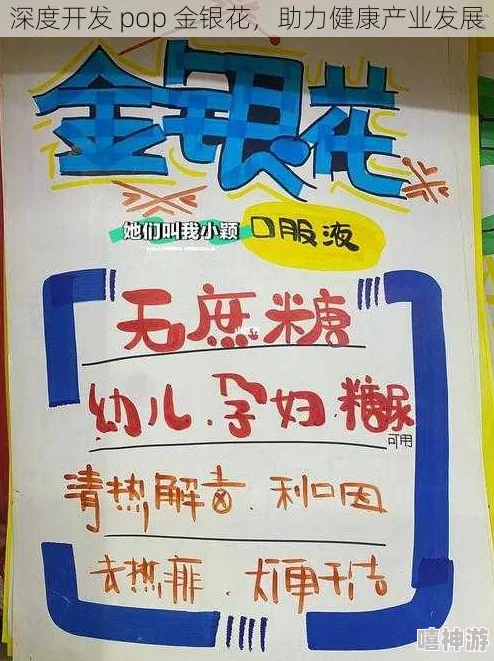 深度开发 pop 金银花，助力健康产业发展
金银花
她们叫我小颖
口服液
"无蔗糖"
幼儿.孕妇.糖尿
可用
清热解毒.利咽
去热痱.大便干结
嘻神游